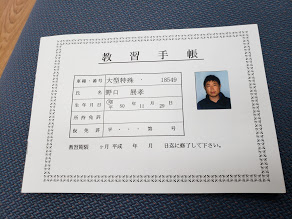 教習手帳
車種・番号 大型特殊・ 18549
氏名 野口 展孝
生年月日 昭 50年 11月 29日
所持免許
仮免許 平・・・ 第 号
教習期限 ヶ月 平成 年 月 日迄に修了して下さい。